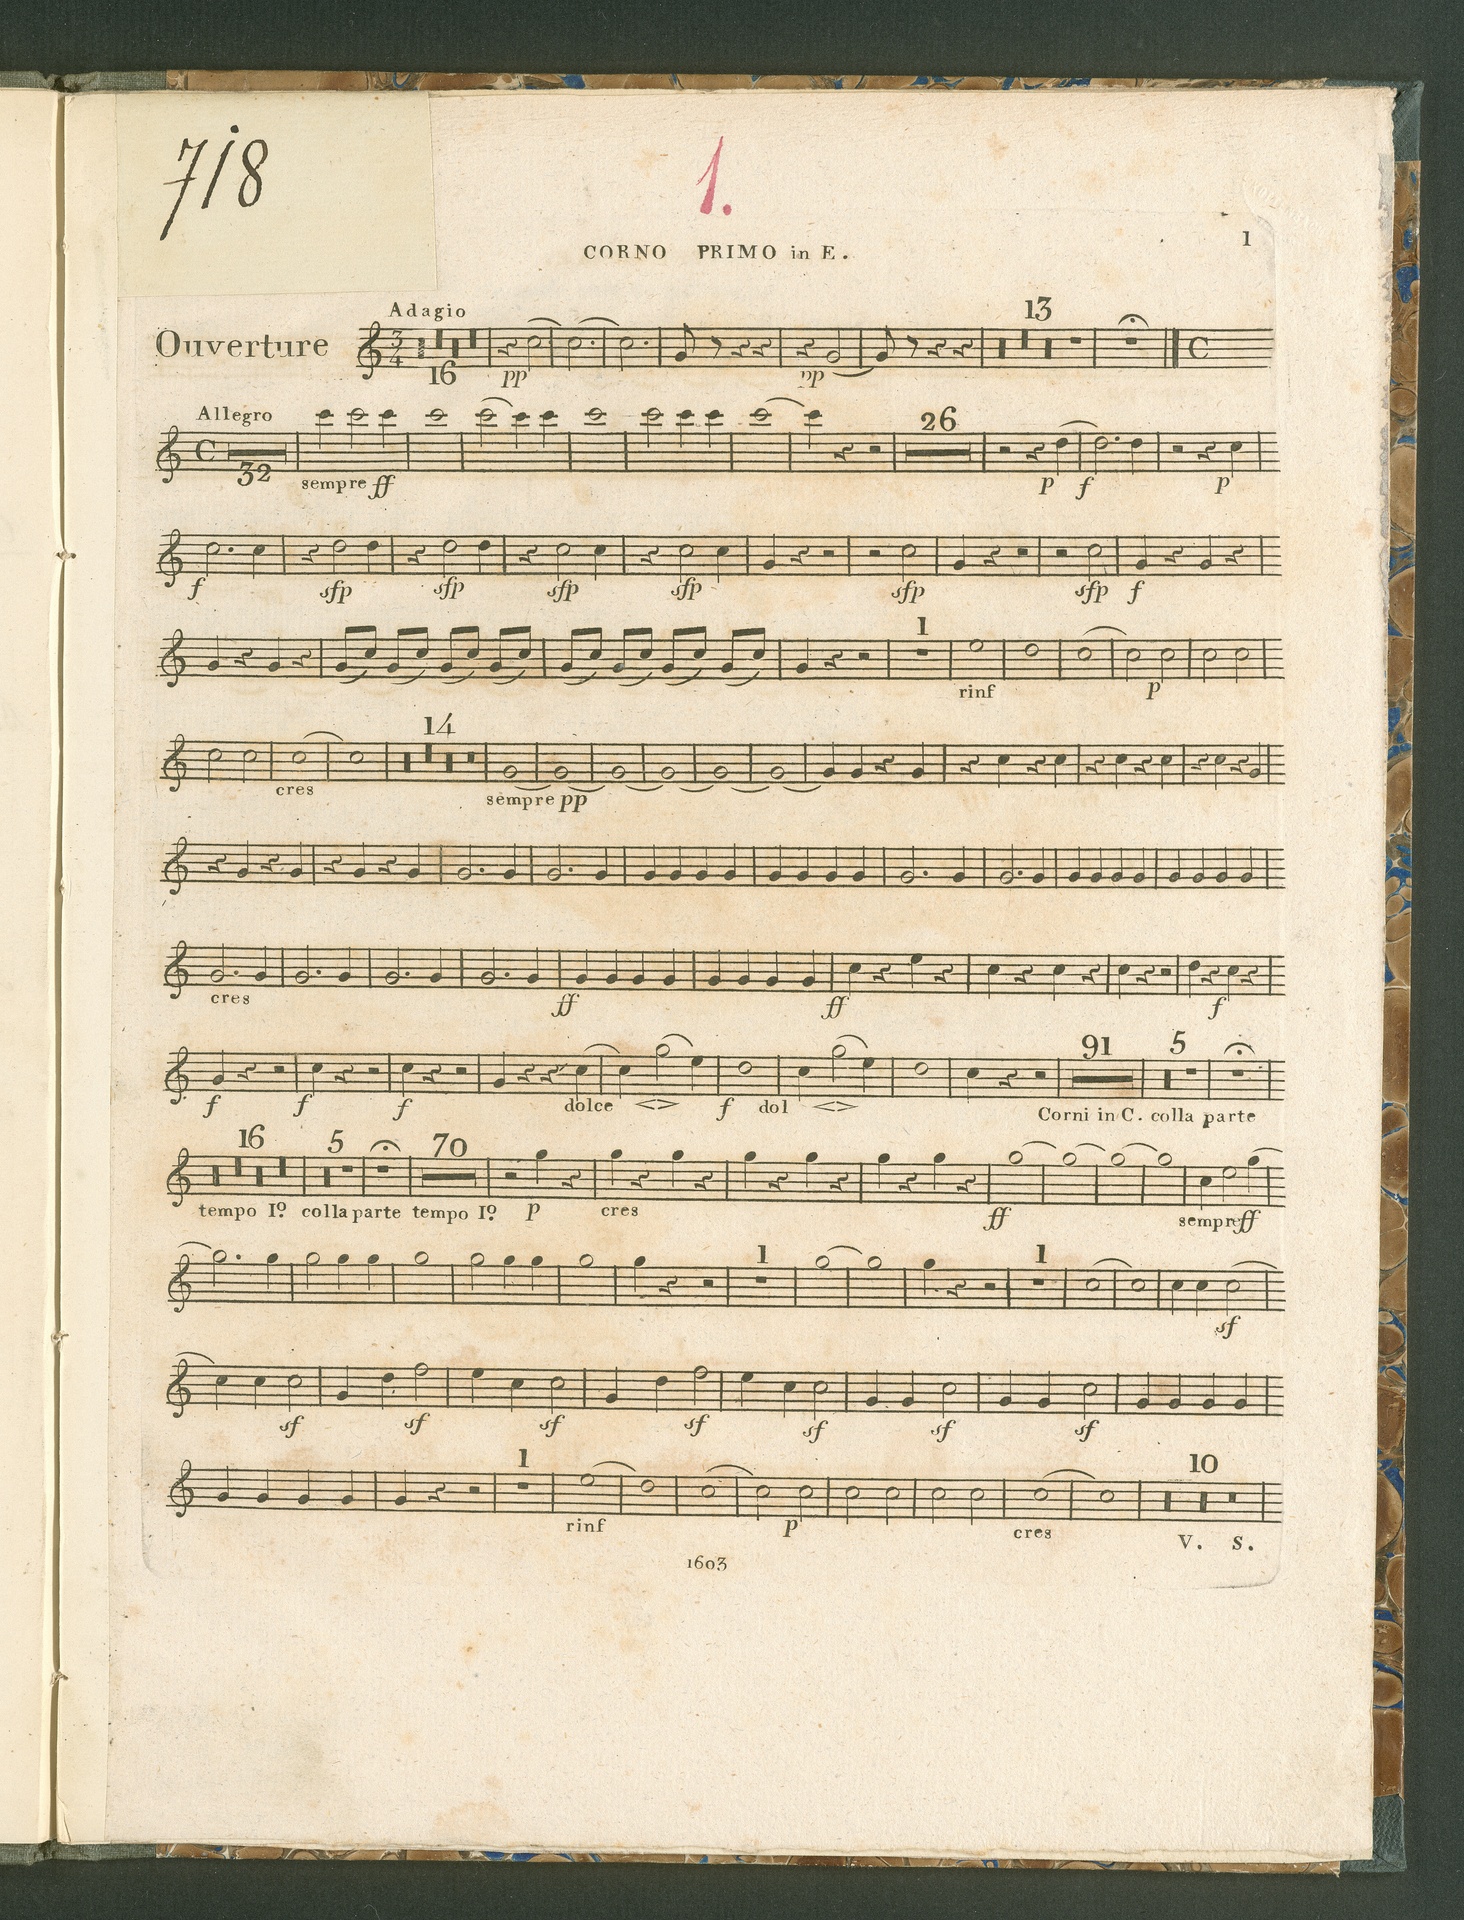 718
1.
1
CORNO PRIMO in E.
Adagio
13
Ouverture
3
4
16
pp
pp
C
Allegro
26
C
32
sempre ff
p f
p
f sfp sfp sfp sfp sfp sfp f
1
rinf p
14
cres sempre pp
cres ff ff f
91 5
f f f dolce f dol Corni in C. colla parte
16 5 70
tempo Iº colla parte tempo Iº p cres ff sempre ff
1 1
sf
sf sf sf sf sf sf sf
1 10
rinf p cres V. S.
1603